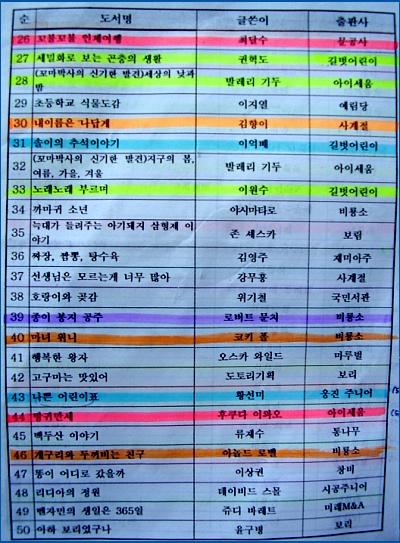 순 도서명 글쓴이 출판사
26 꼬불꼬불 인체여행 최달수 문공사
27 세밀화로 보는 곤충의 생활 권혁도 길벗어린이
28 (꼬마박사의 신기한 발견)세상의 낮과 밤 발레리 기두 아이세움
29 초등학교 식물도감 이지열 예림당
30 내이름은 나답게 김향이 사계절
31 솔이의 추석이야기 이억배 길벗어린이
32 (꼬마박사의 신기한 발견)지구의 봄, 여름, 가을, 겨울 발레리 기두 아이세움
33 노래노래 부르며 이원수 길벗어린이
34 까마귀 소년 야시마타로 비룡소
35 늑대가 들려주는 아기돼지 삼형제 이야기 존 세스카 보림
36 짜장, 짬뽕, 탕수육 김영주 재미마주
37 선생님은 모르는게 너무 많아 강무홍 사계절
38 호랑이와 곶감 위기철 국민서관
39 종이 봉지 공주 로버트 문치 비룡소
40 마녀 위니 코키 폴 비룡소
41 행복한 왕자 오스카 와일드 마루벌
42 고구마는 맛있어 도토리기획 보리
43 나쁜 어린이표 황선미 웅진 주니어
44 방귀만세 후쿠다 이와오 아이세움
45 백두산 이야기 류재수 통나무
46 개구리와 두꺼비는 친구 아놀드 로벨 비룡소
47 똥이 어디로 갔을까 이상권 창비
48 리디아의 정원 데이비드 스몰 시공주니어
49 벤자민의 생일은 365일 쥬디 바레트 미래M&A
50 아하 보리였구나 윤구병 보리